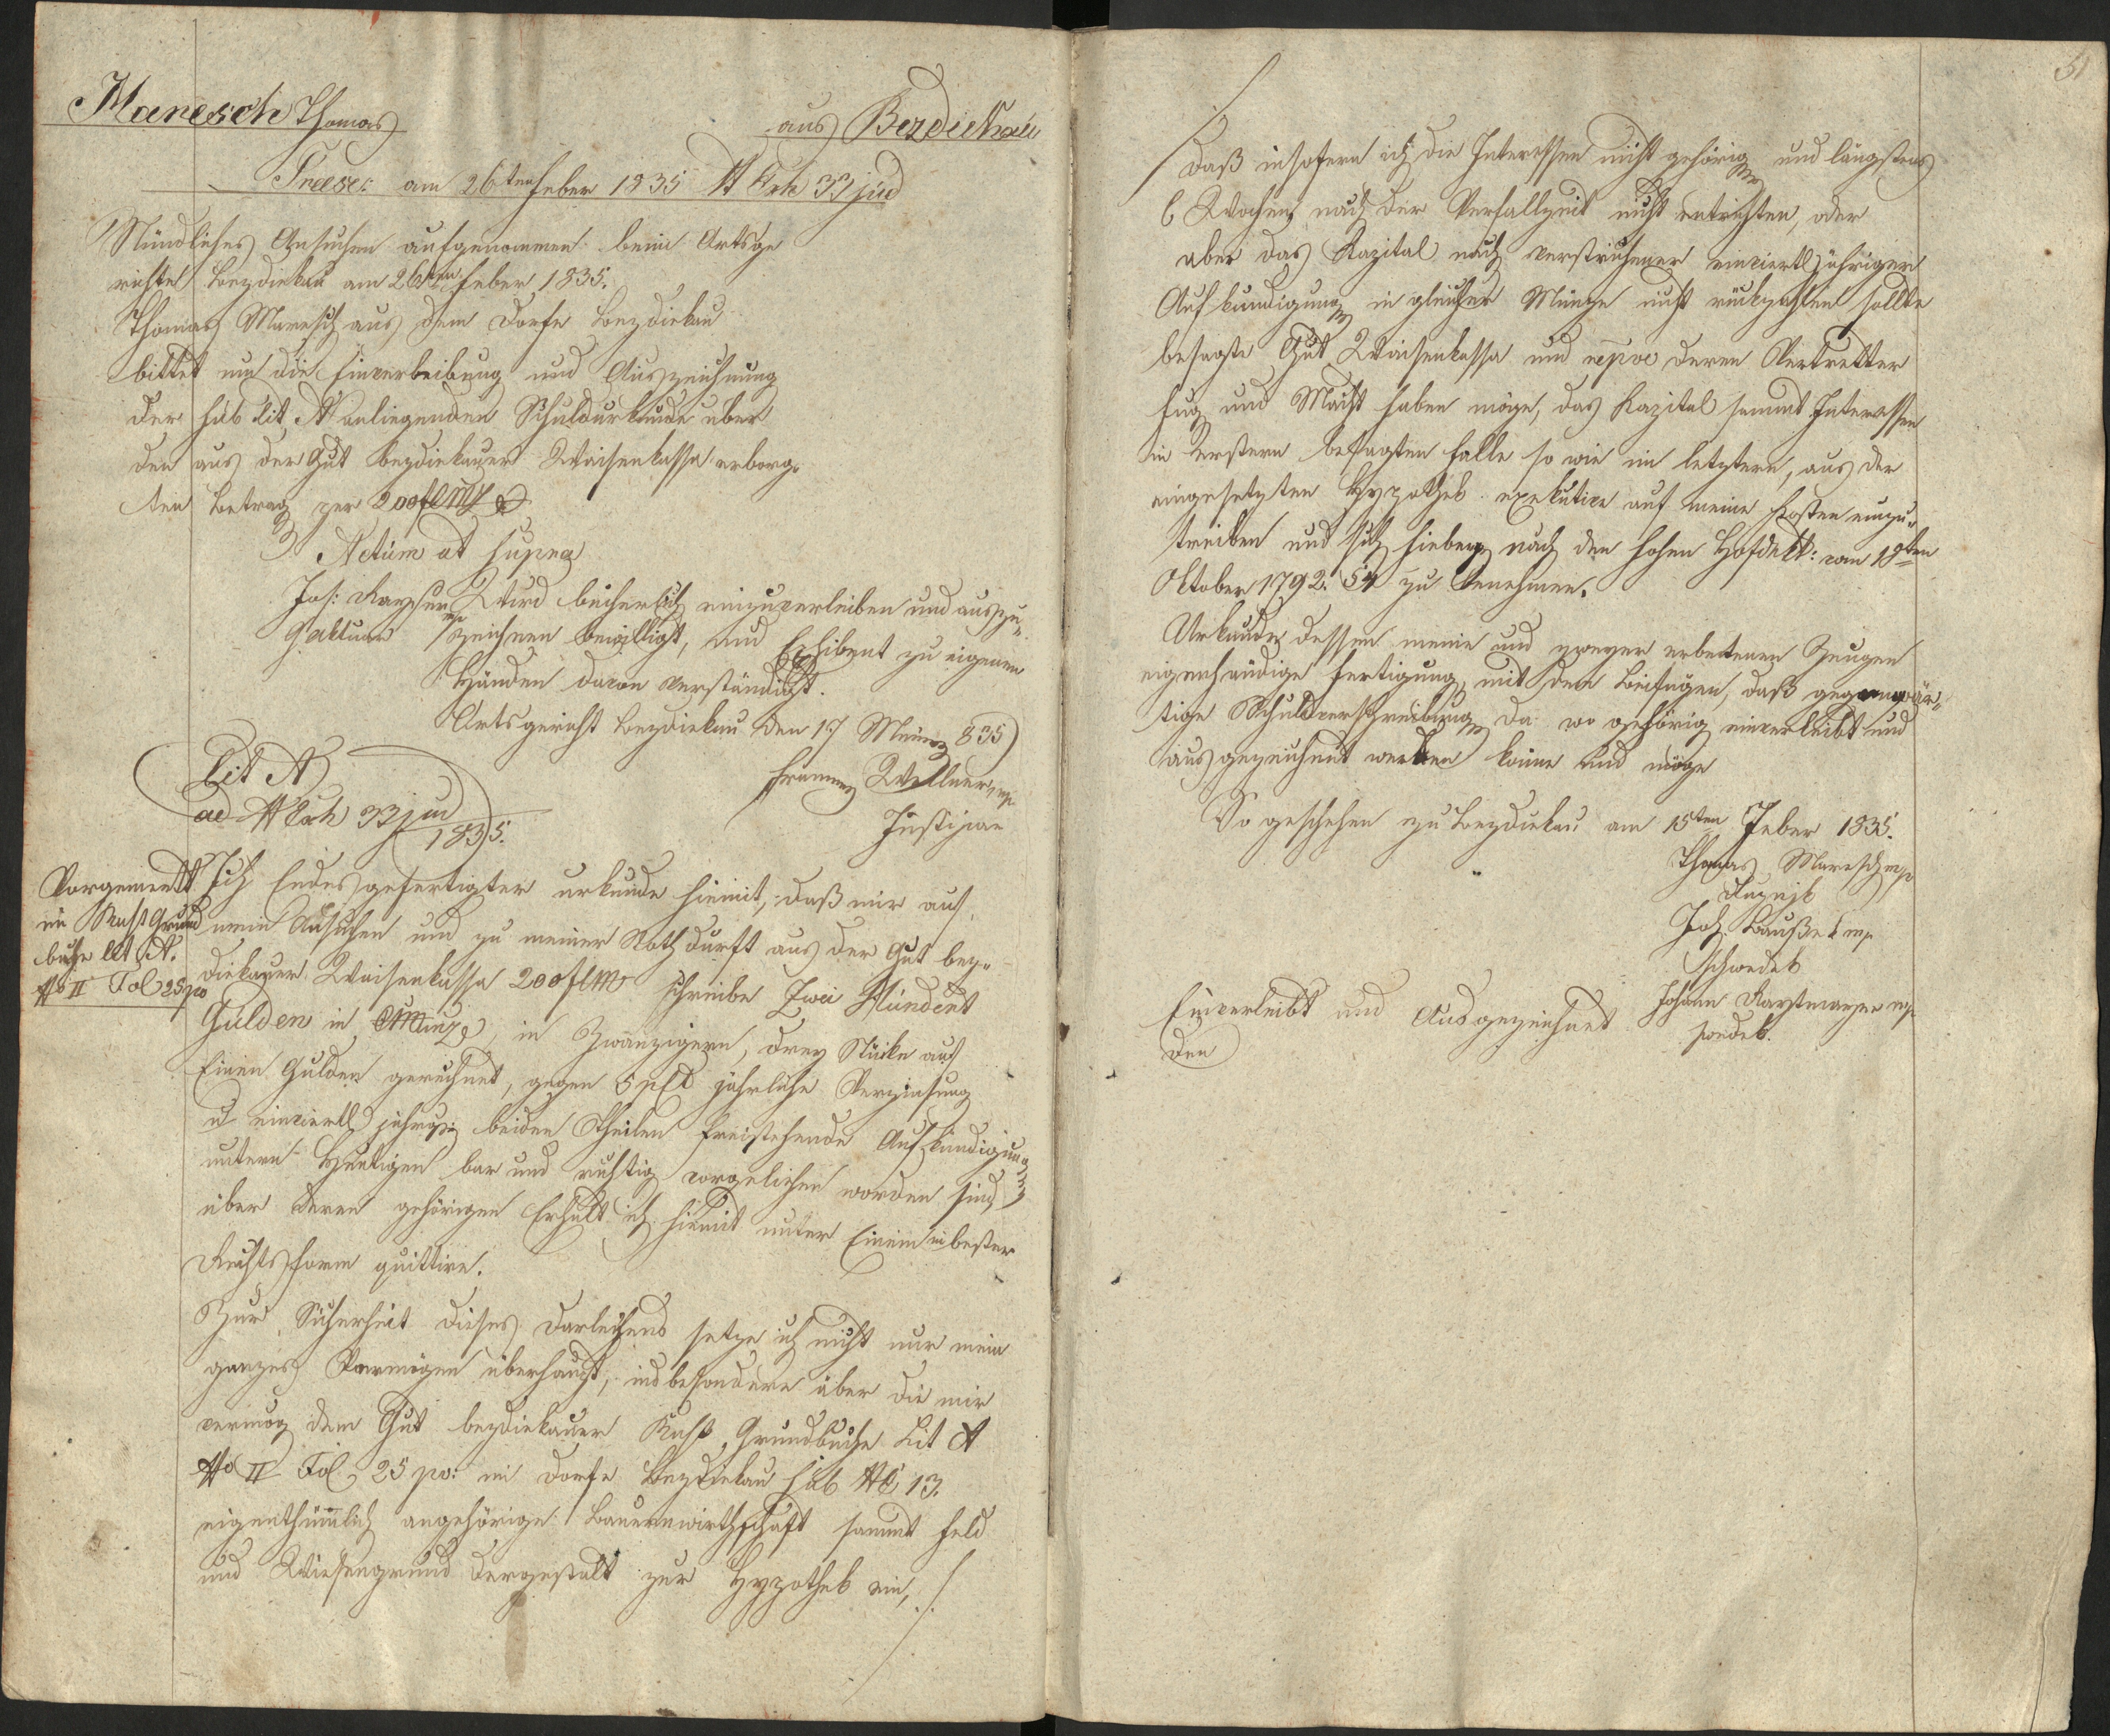 Maresch Thomas
aus Bezdiekau
am 26ten Feber 1835 N Exh 33 jud
Mündliches Ansuchen aufgenommen beim Ortsge
richte Bezdiekau am 26ten Feber 1835.
Thomas Maresch aus dem Dorfe Bezdiekau
bittet um die Einverleibung und Auszeichnung
der sub Lit. A anliegenden Schuldurkunde über
den aus der Gut Bezdiekauer Waisenkassa erborg-
ten Betrag per 200 fl CMz
Actum ut supra
Jos: Kayser mp
Aktuar
Wird bücherlich einzuverleiben und auszu-
zeichnen bewilligt, und Exhibent zu eigenen
Händen davon verständigt.
Ortsgericht Bezdiekau den 17 März 835
Franz Wellner mp
Justiziar
Lit A
ad N Exh 33 jud
1835.
Vorgemerkt
im Rust. Grund
buche Lit A.
No II Fol 25 po
Ich Endesgefertigter urkunde hiemit, daß mir auf
mein Ansuchen und zu meiner Nothdurft aus der Gut bez-
diekauer Waisenkassa 200 fl CM schreibe Zwei Hundert
Gulden in CMünze, in Zwanzigern, drey Stücke auf
Einen Gulden gerechnet, gegen 5 pCto jährliche Verzinsung
u einviertljährige beiden Theilen freistehende Aufkündigung
unterm Heutigen bar und richtig vorgeliehen worden sind,
über deren gehörigen Erhalt ich hiemit unter Einem in bester
Rechtsform quittire.
Zur Sicherheit dieses Darleihens setze ich nicht nur mein
ganzes Vermögen überhaupt, insbesondere aber die mir
vermög dem Gut bezdiekauer Rust. Grundbuche Lit A
No II Fol. 25 po: im Dorfe Bezdiekau sub NC 13.
eigenthümlich angehörige Bauernwirthschaft sammt Feld
und Wiesengrund dergestalt zur Hypothek ein, ./.
51
./.
daß insofern ich die Interessen nicht gehörig und längstens
6 Wochen nach der Verfallzeit nicht entrichten, oder
aber das Kapital nach verstrichener einviertljähriger
Aufkündigung in gleicher Münze nicht rückzahlen sollte
besagte Gut Waisenkassa und respve deren Vertretter
Fug und Macht haben möge, das Kapital sammt Interessen
im Erstern besagten Falle so wie im letztern, aus der
eingesetzten Hypothek exekutive auf meine Kosten einzu-
treiben und sich hiebey nach dem hohen Hofdekt: vom 18ten
Oktober 1792. § 4 zu benehmen.
Urkunde dessen meine und zweyer erbettenen Zeugen
eigenhändige Fertigung, mit dem Beifügen, daß gegenwär-
tige Schuldverschreibung da wo gehörig einverleibt und
ausgezeichnet werden könne und möge
So geschehen zu Bezdiekau am 15ten Feber 1835.
Thomas Maresch mp
Joh. mp
schwedek
Johann mp
swedek.
Einverleibt und Ausgezeichnet
den